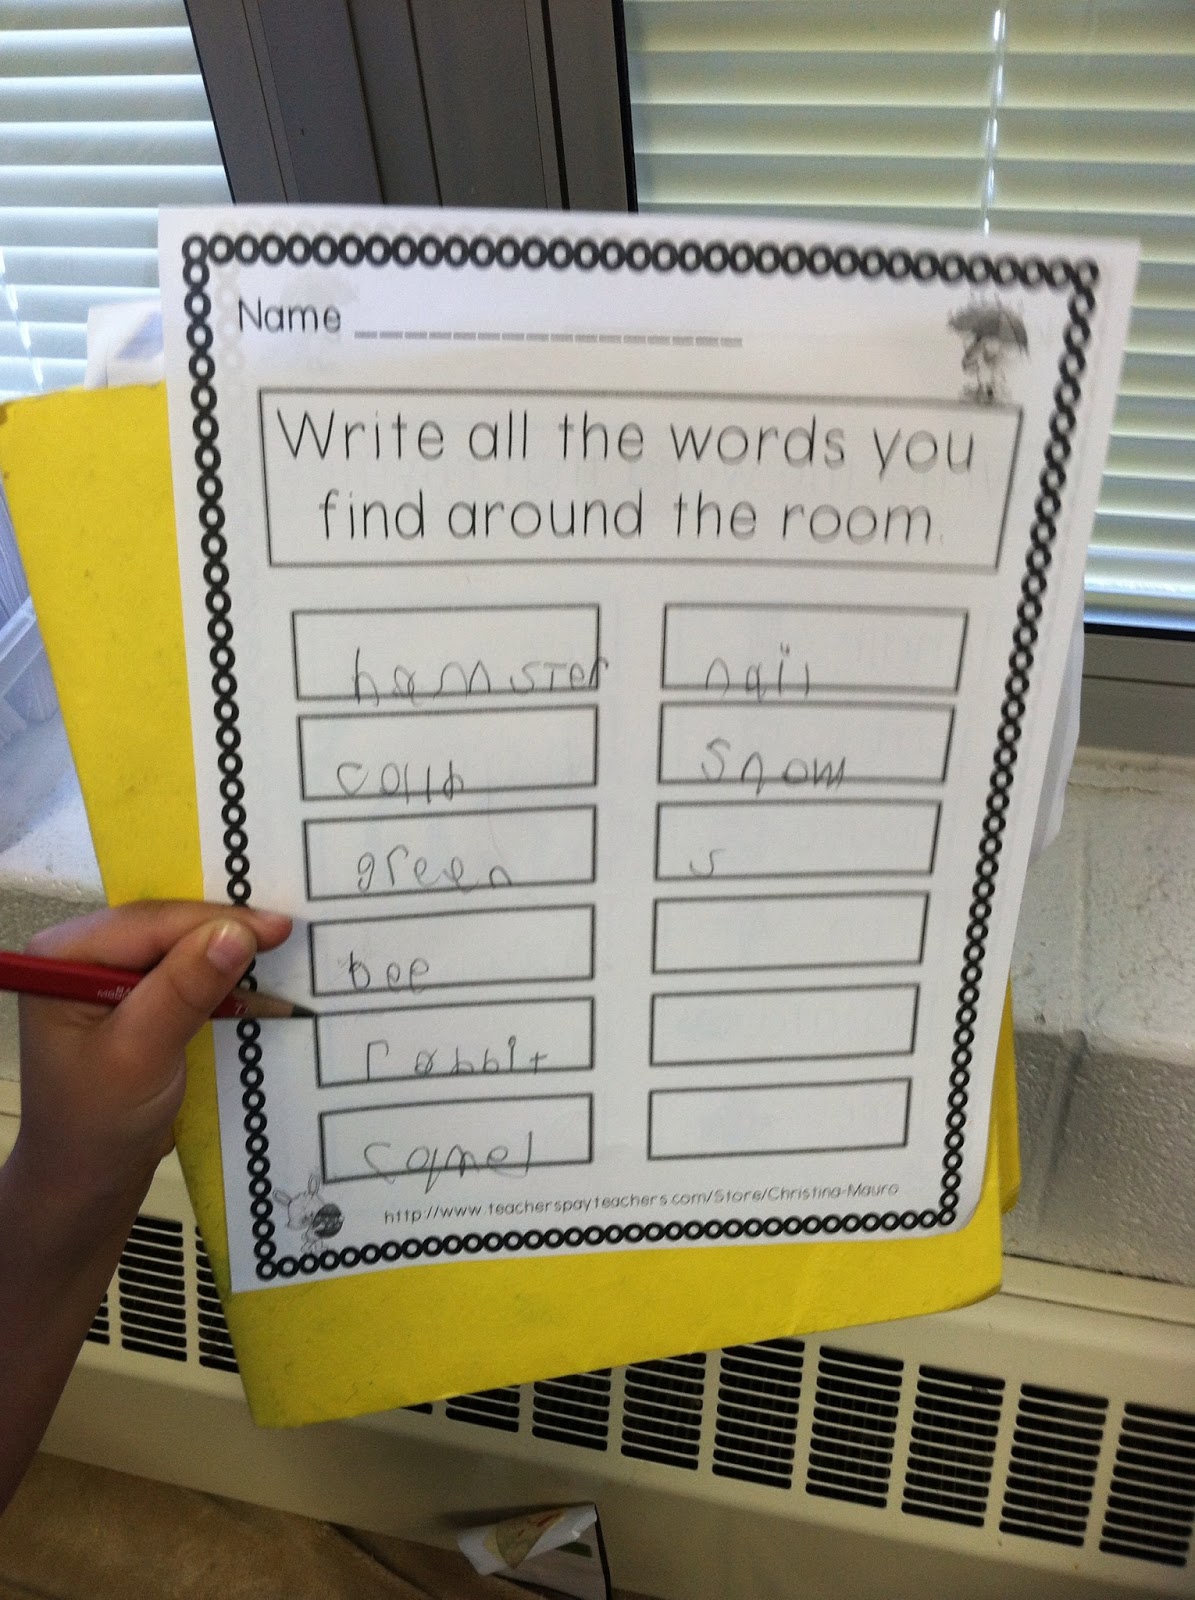 Name
Write all the words you
find around the room.
hamster
nail
snow
green
s
bee
rabbit
camel
http://www.teacherspayteachers.com/Store/Christina-Mauro